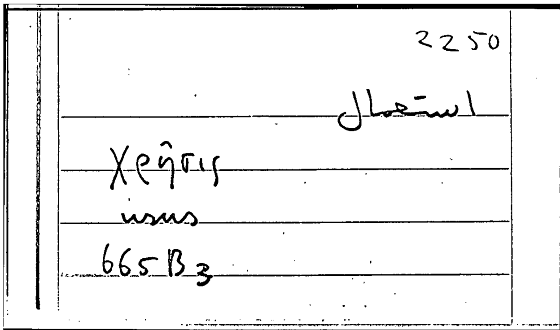 2250
استعمال
χρῆσις
usus
665 B 3